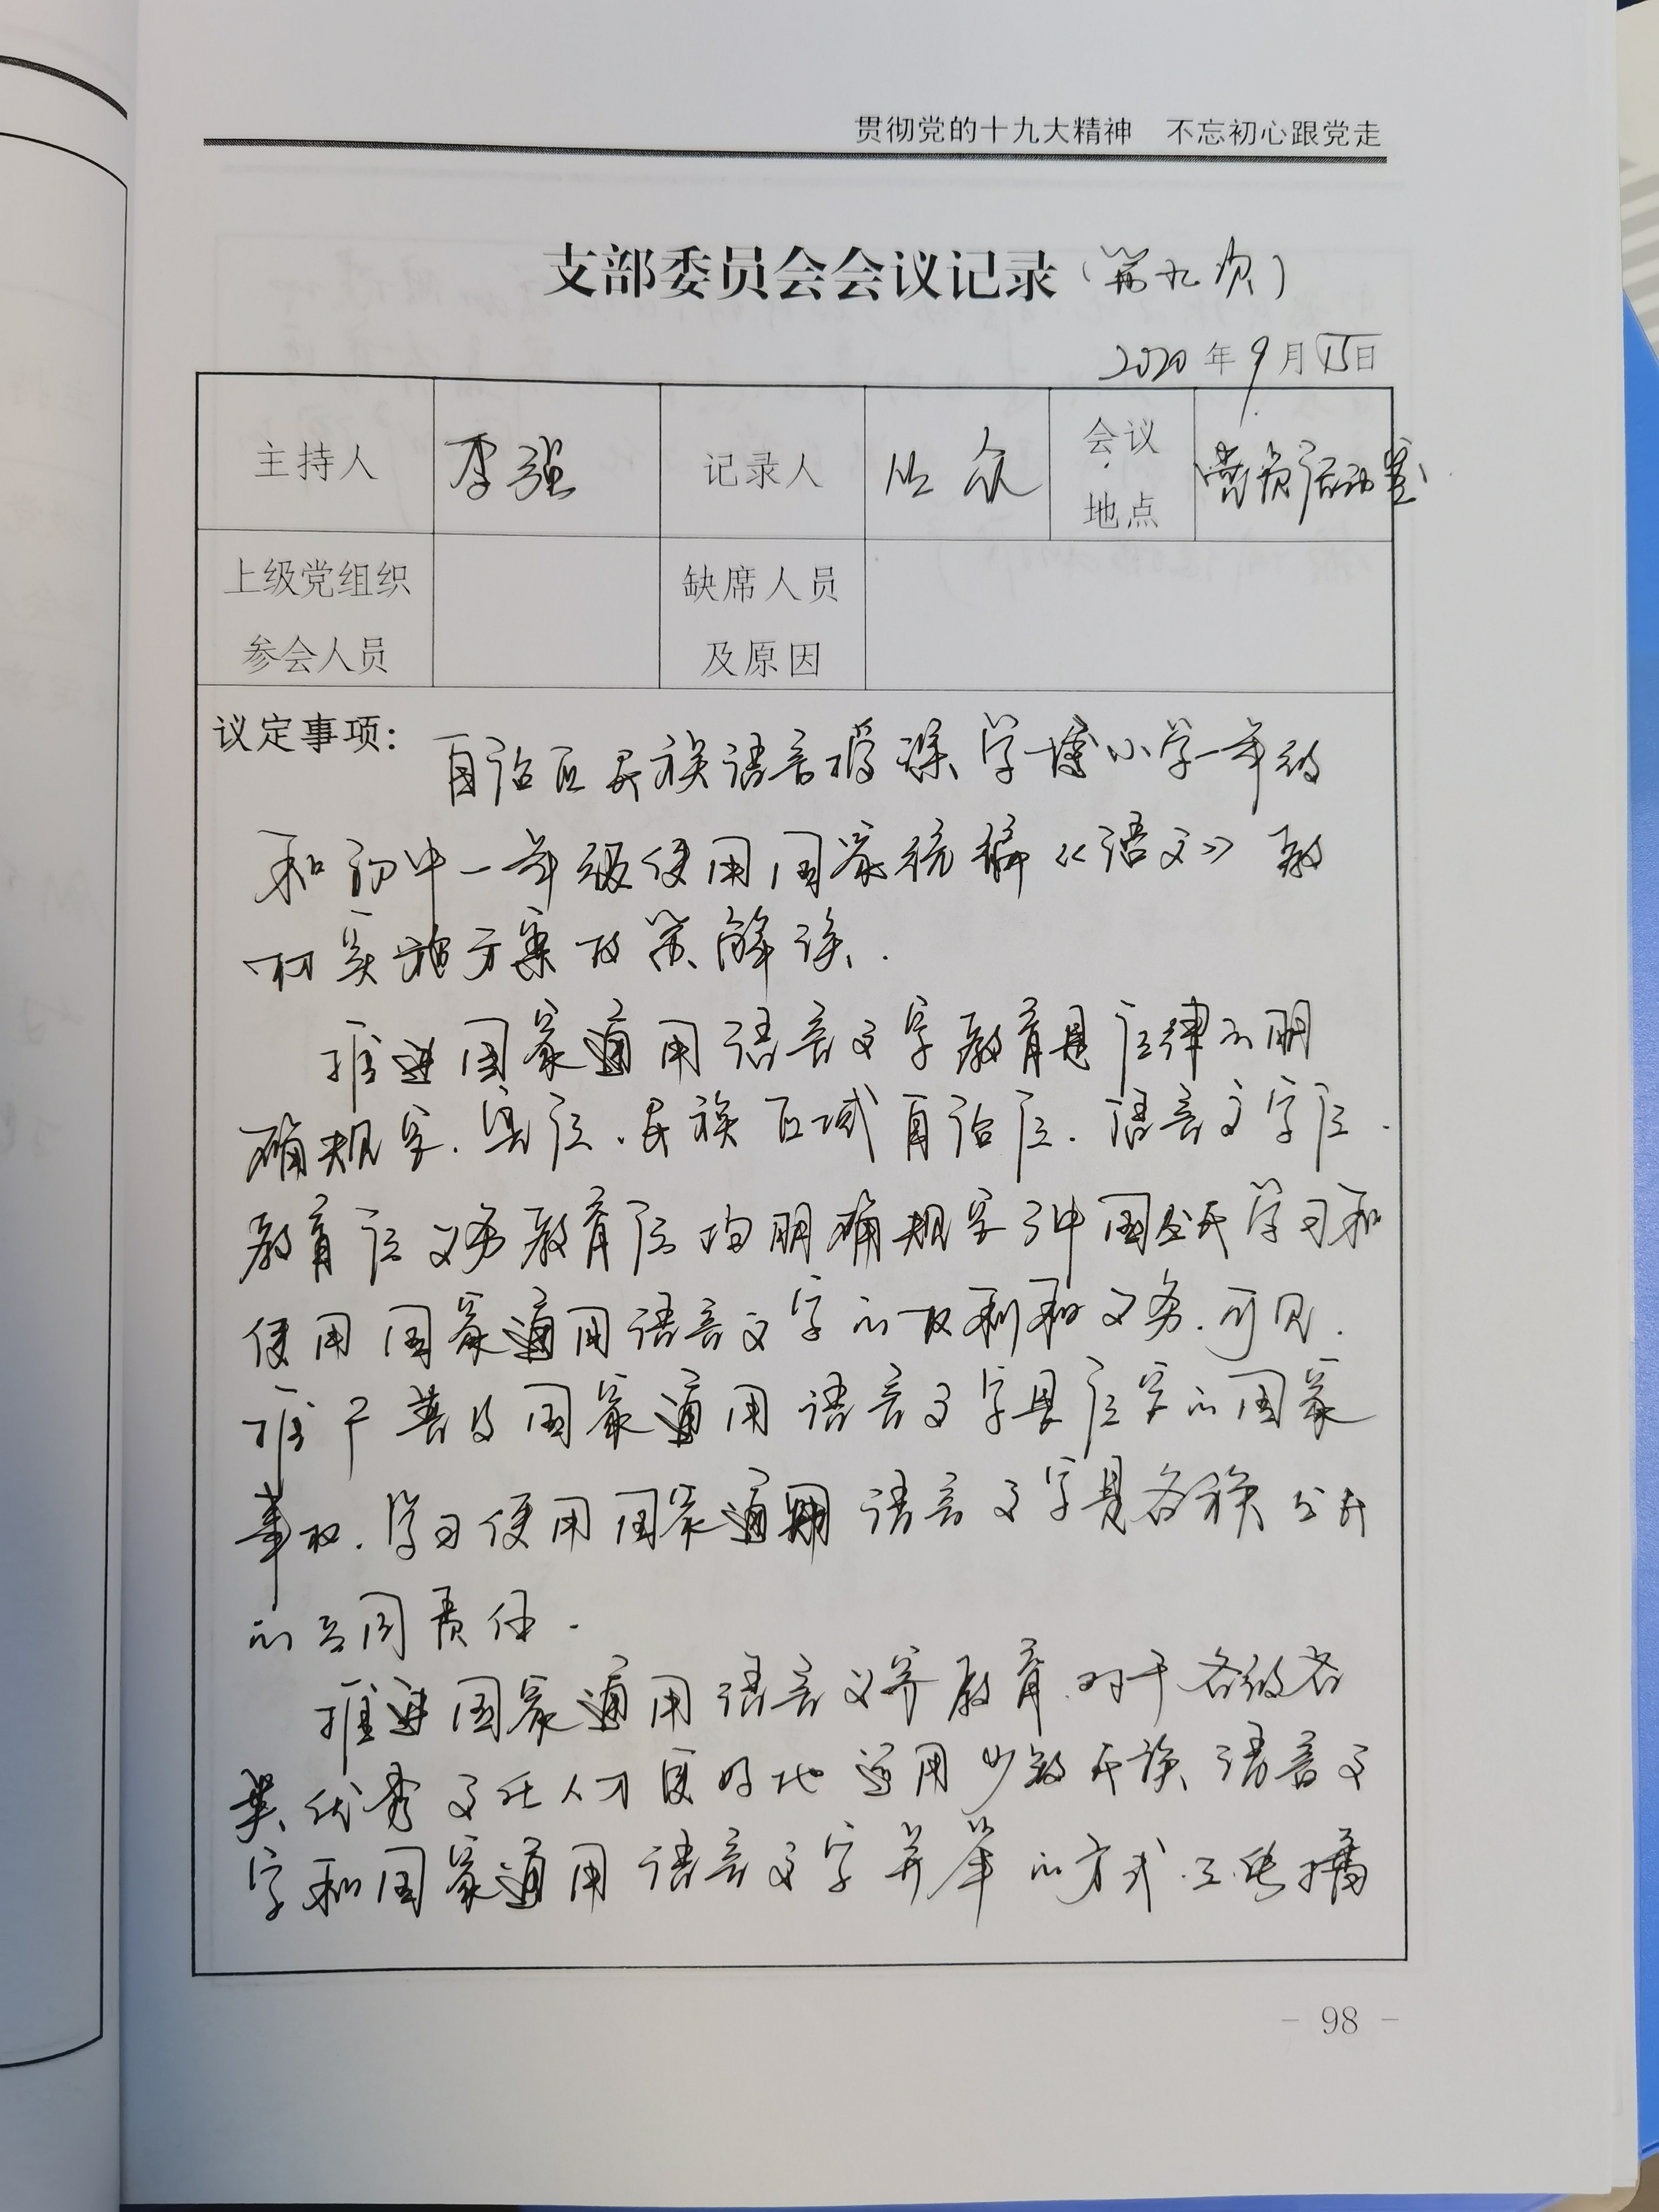 贯彻党的十九大精神 不忘初心跟党走
支部委员会会议记录（第九次）
2020年9月15日
主持人 李强 记录人 会议地点 党员活动室
上级党组织参会人员 缺席人员及原因
议定事项：自治区民族语言授课学校小学一年级
和初中一年级使用国家统编《语文》教
材实施方案政策解读.
推进国家通用语言文字教育是法律的明
确规定.宪法.民族区域自治法.语言文字法.
教育法义务教育法均明确规定了中国公民学习和
使用国家通用语言文字的权利和义务.可见.
推广普及国家通用语言文字是法定的国家
事权.学习使用国家通用语言文字是各族公民
的共同责任.
推进国家通用语言文字教育.对于各级各
类优秀文化人才更好地运用少数民族语言文
字和国家通用语言文字并举的方式.传播
- 98 -